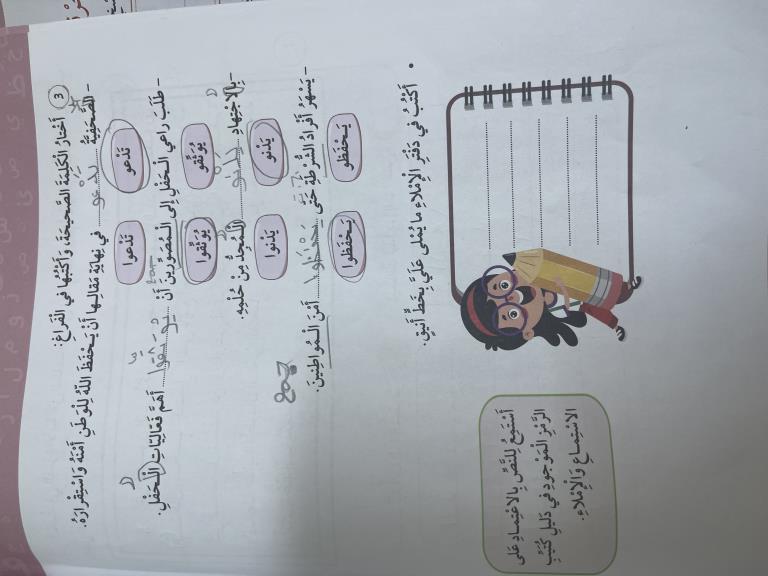 3 أَخْتَارُ الْكَلِمَةَ الصَّحِيحَةَ، وَأَكْتُبُهَا فِي الْفَرَاغِ:
– الصَّحَفِيَّةُ ........ تدعو ........ فِي نِهَايَةِ مَقَالِهَا أَنْ يَحْفَظَ اللهُ لِلْوَطَنِ أَمْنَهُ وَاسْتِقْرَارَهُ.
تَدْعُو تَدْعُوا
– طَلَبَ رَاعِي الْحَفْلِ إِلَى الْمُصَوِّرِينَ أَنْ ........ يوثّقوا ........ أَهَمَّ فَعَالِيَّاتِ الْحَفْلِ.
جمع
يُوَثِّقُو يُوَثِّقُوا
– بِالِاجْتِهَادِ ........ يدنو ........ الْمُجِدُّ مِنْ حُلُمِهِ.
يَدْنُو يَدْنُوا
– يَسْهَرُ أَفْرَادُ الشُّرْطَةِ حَتَّى ........ يحفظوا ........ أَمْنَ الْمُوَاطِنِينَ.
جمع
يَحْفَظُو يَحْفَظُوا
• أَكْتُبُ فِي دَفْتَرِ الْإِمْلَاءِ مَا يُمْلَى عَلَيَّ بِخَطٍّ أَنِيقٍ.
أَسْتَمِعُ لِلنَّصِّ بِالِاعْتِمَادِ عَلَى
الرَّمْزِ الْمَوْجُودِ فِي دَلِيلِ كُتَيِّبِ
الِاسْتِمَاعِ وَالْإِمْلَاءِ.